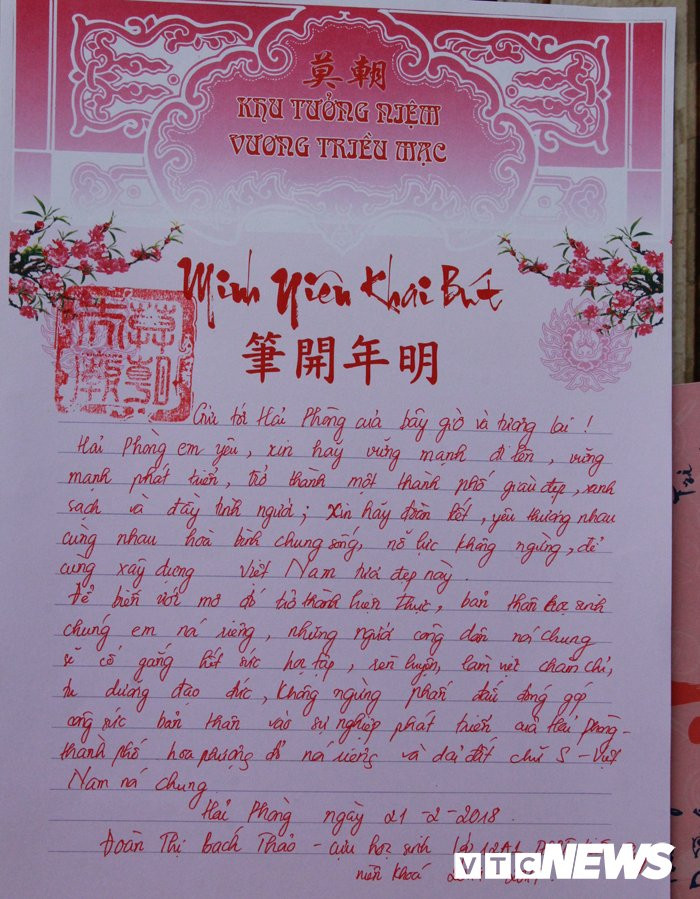 莫朝
KHU TƯỞNG NIỆM
VƯƠNG TRIỀU MẠC
Minh Niên Khai Bút
筆開年明
Gửi tới Hải Phòng của bây giờ và tương lai !
Hải Phòng em yêu, xin hãy vững mạnh đi lên, vững
mạnh phát triển, trở thành một thành phố giàu đẹp, xanh
sạch và đầy tình người; xin hãy đoàn kết, yêu thương nhau
cùng nhau hoà bình chung sống, nỗ lực không ngừng, để
cùng xây dựng Việt Nam tươi đẹp này.
Để biến ước mơ đó trở thành hiện thực, bản thân học sinh
chúng em nói riêng, những người công dân nói chung
sẽ cố gắng hết sức học tập, rèn luyện, làm việc chăm chỉ,
tu dưỡng đạo đức, không ngừng phấn đấu đóng góp
công sức bản thân vào sự nghiệp phát triển của Hải Phòng -
thành phố hoa phượng đỏ nói riêng và dải đất chữ S - Việt
Nam nói chung
Hải Phòng ngày 21 - 2 - 2018.
Đoàn Thị Bạch Thảo - cựu học sinh lớp 12A1
niên khoá
VTC NEWS